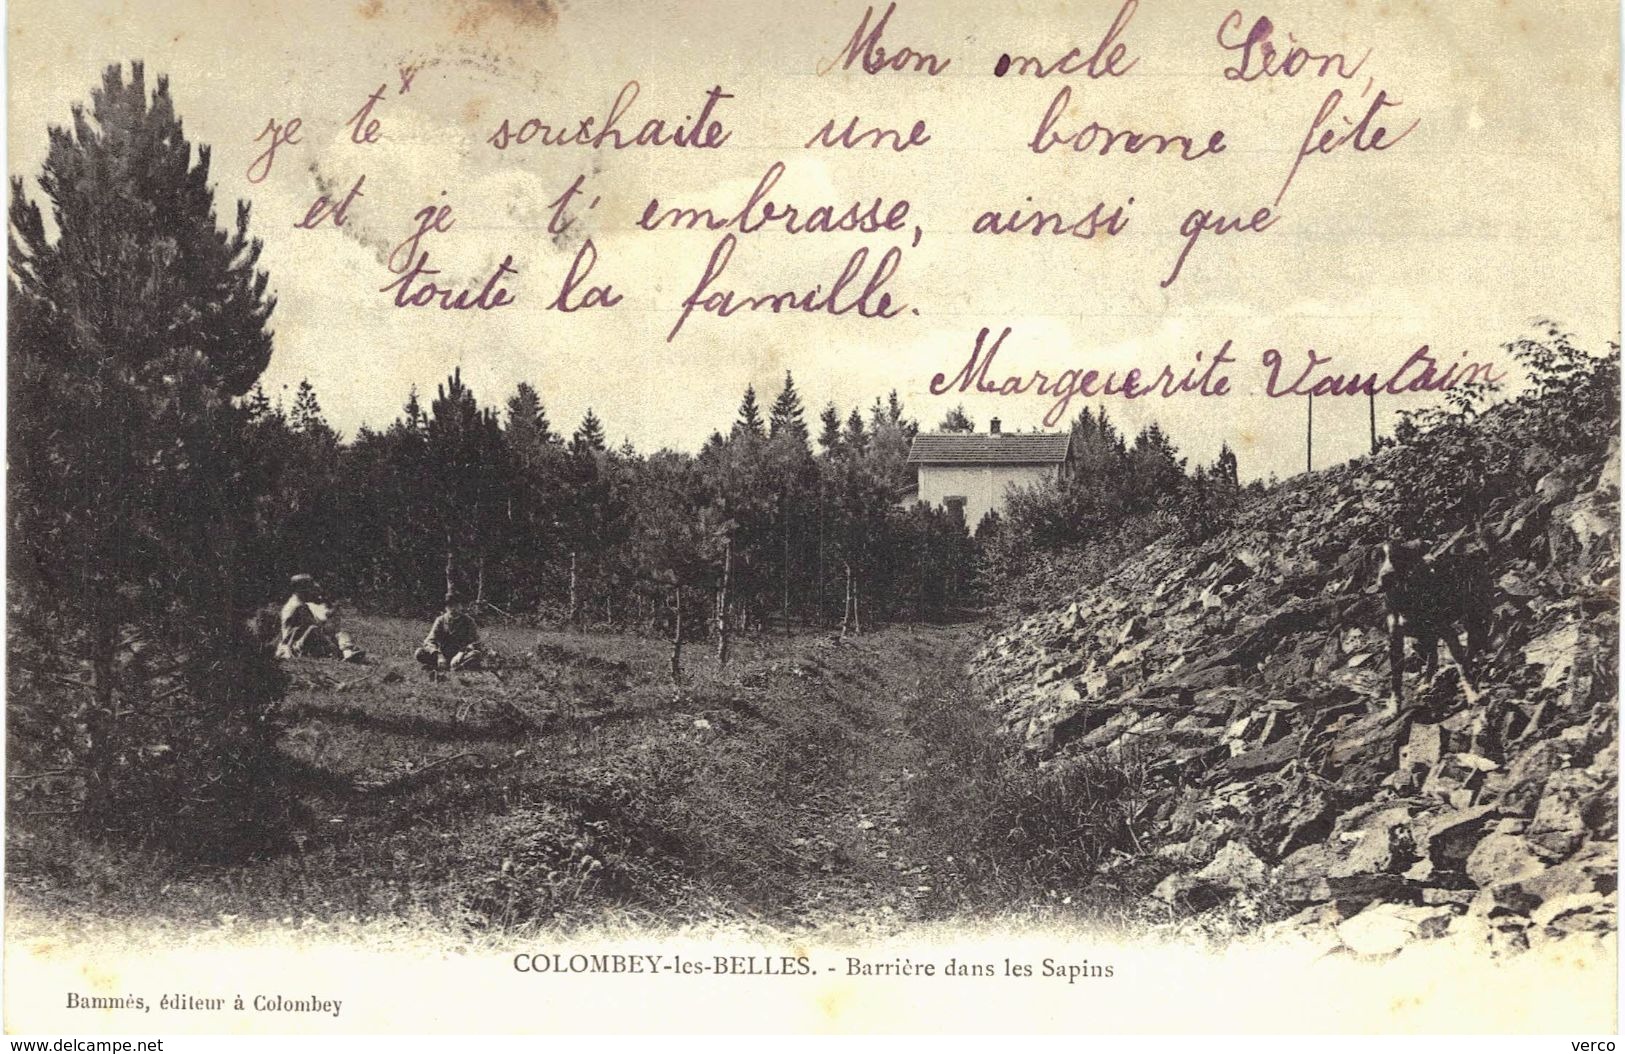 Mon oncle Léon,
je te souhaite une bonne fête
et je t'embrasse, ainsi que
toute la famille.
Marguerite
COLOMBEY-les-BELLES. - Barrière dans les Sapins
Bammès, éditeur à Colombey
www.delcampe.net
verco